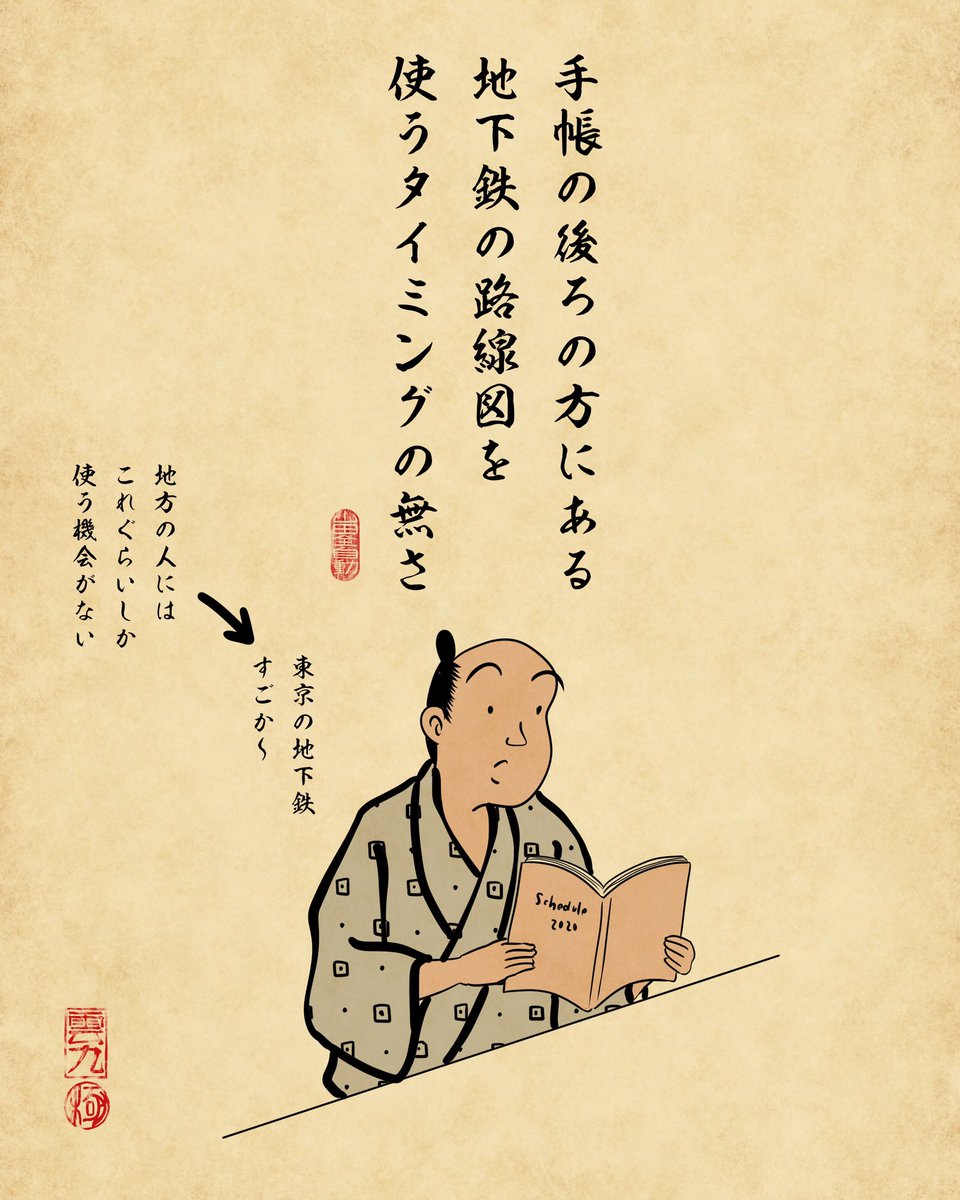 手帳の後ろの方にある
地下鉄の路線図を
使うタイミングの無さ
地方の人には
これぐらいしか
使う機会がない
東京の地下鉄
すごか〜
Schedule
2020